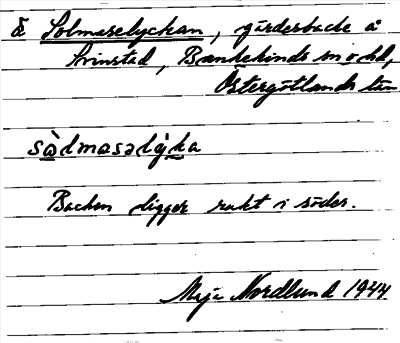 Æ Solmaselyckan, gärdesbacke å
Svinstad, Bankekinds sn o hd,
Östergötlands län
sòlmasəlỳka
Backen ligger rakt i söder.
Maja Nordlund 1944